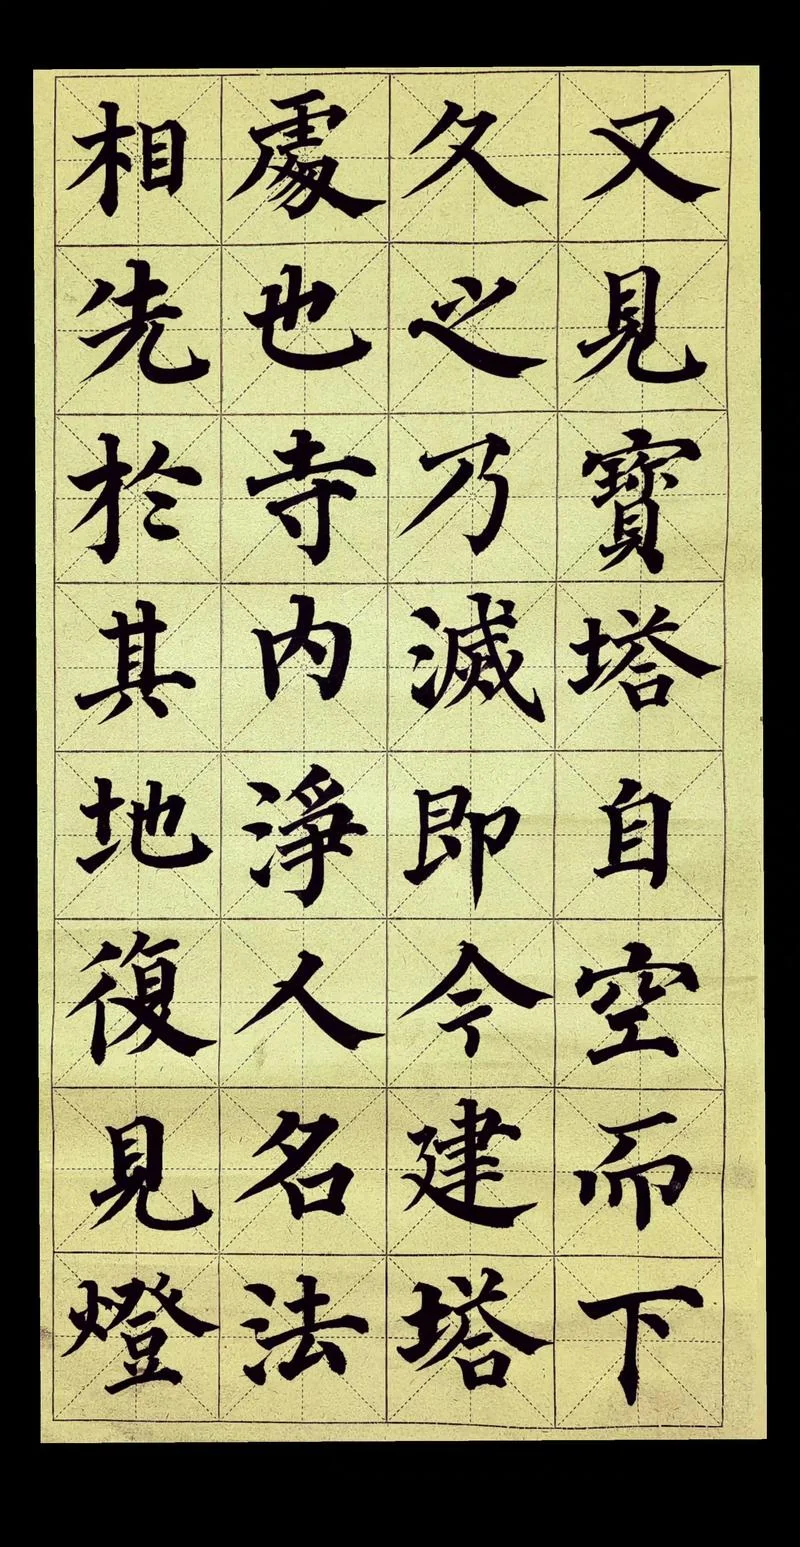 又見寶塔自空而下
久之乃滅即今建塔
處也寺內淨人名法
相先於其地復見燈